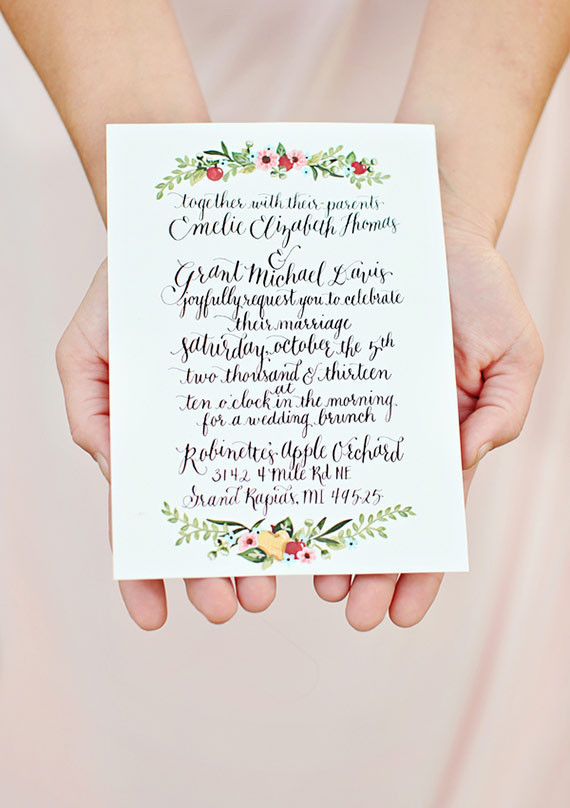 together with their parents
Emelie Elizabeth Thomas
&
Grant Michael Davis
joyfully request you to celebrate
their marriage
saturday, october the 5th
two thousand & thirteen
at
ten o'clock in the morning
for a wedding brunch
Robinette's Apple Orchard
3142 4 Mile Rd NE
Grand Rapids, MI 49525